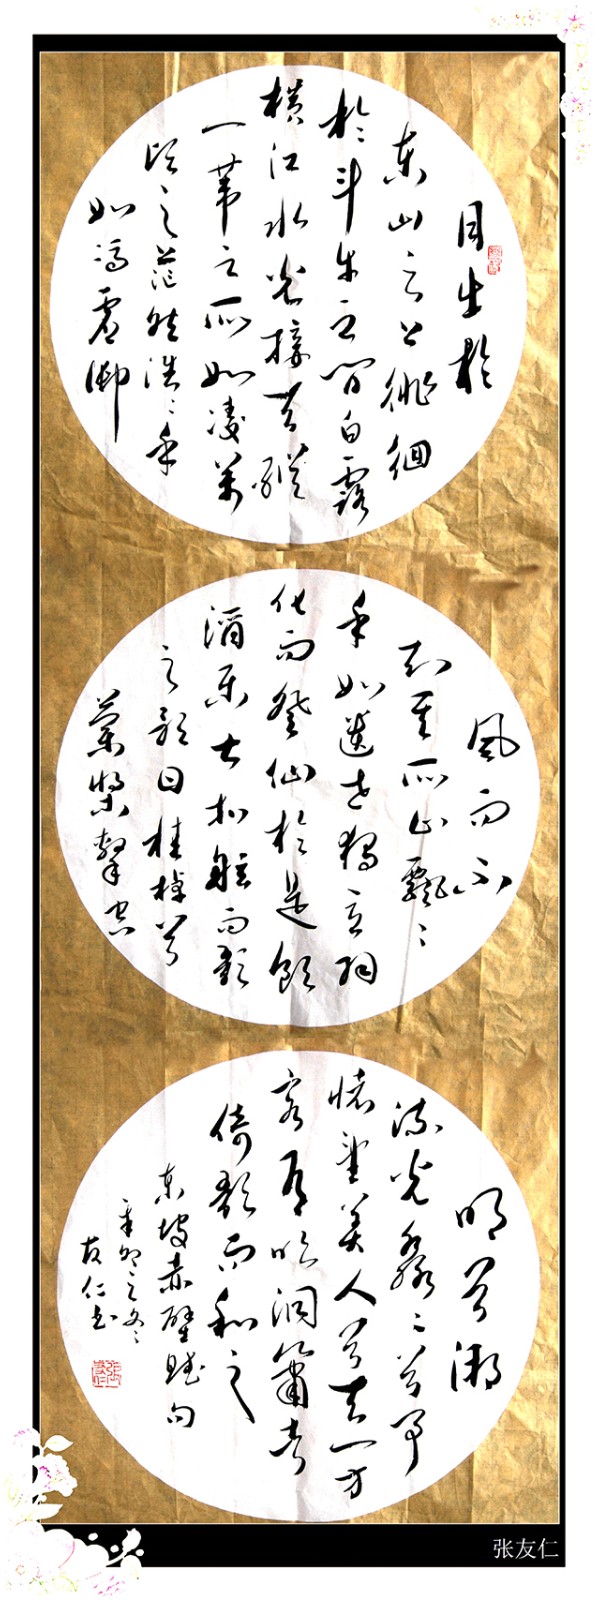 月出於
東山之上徘徊
於斗牛之間白露
橫江水光接天縱
一葦之所如凌萬
頃之茫然浩々乎
如馮虛御
風而不
知其所止飄々
乎如遺世獨立羽
化而登仙於是飲
酒樂甚扣舷而歌
之歌曰桂棹兮
蘭槳擊空
明兮溯
流光渺々兮予
懷望美人兮天一方
客有吹洞簫者
倚歌而和之
東坡赤壁賦句
辛卯之冬
友仁书
张友仁